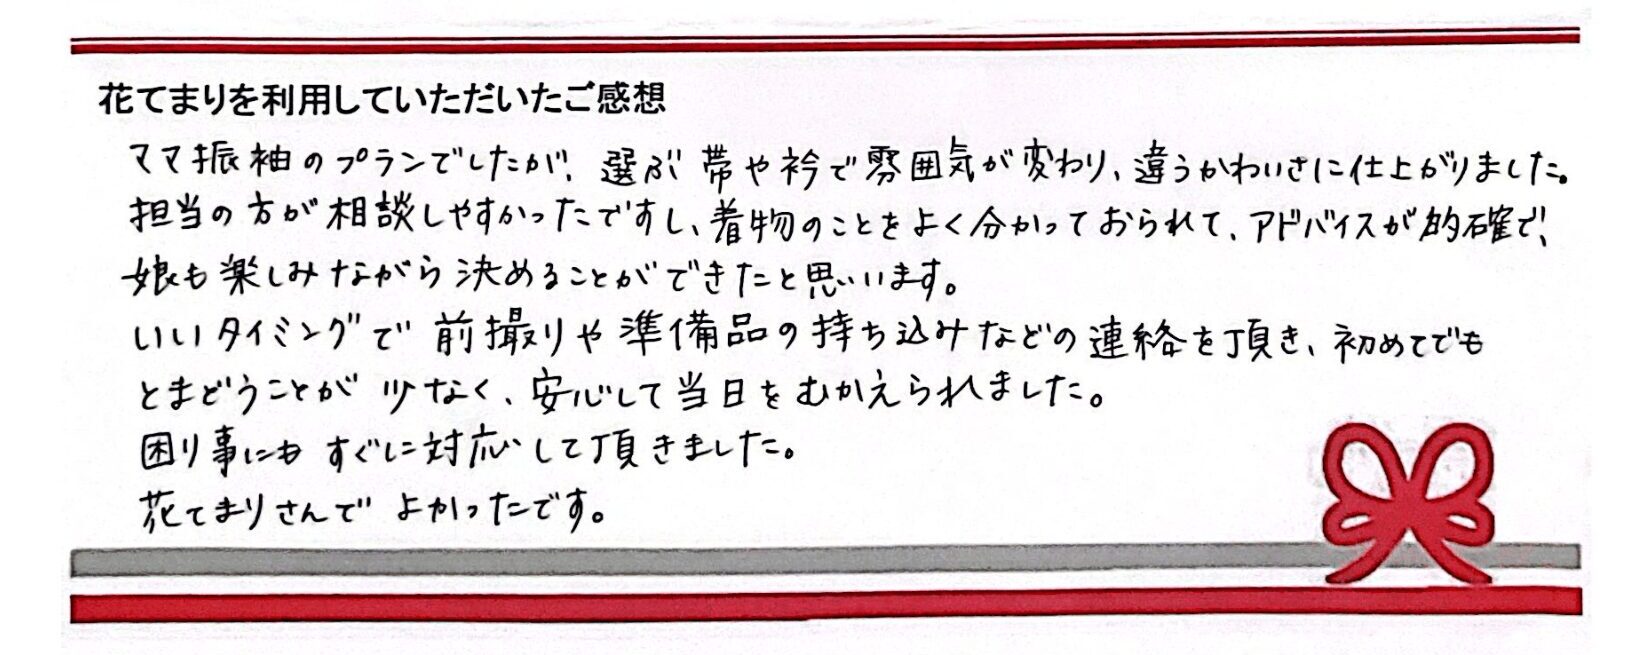 花てまりを利用していただいたご感想
ママ振袖のプランでしたが、選ぶ帯や衿で雰囲気が変わり、違うかわいさに仕上がりました。
担当の方が相談しやすかったですし、着物のことをよく分かっておられて、アドバイスが的確で、
娘も楽しみながら決めることができたと思います。
いいタイミングで前撮りや準備品の持ち込みなどの連絡を頂き、初めてでも
とまどうことが少なく、安心して当日をむかえられました。
困り事にもすぐに対応して頂きました。
花てまりさんでよかったです。